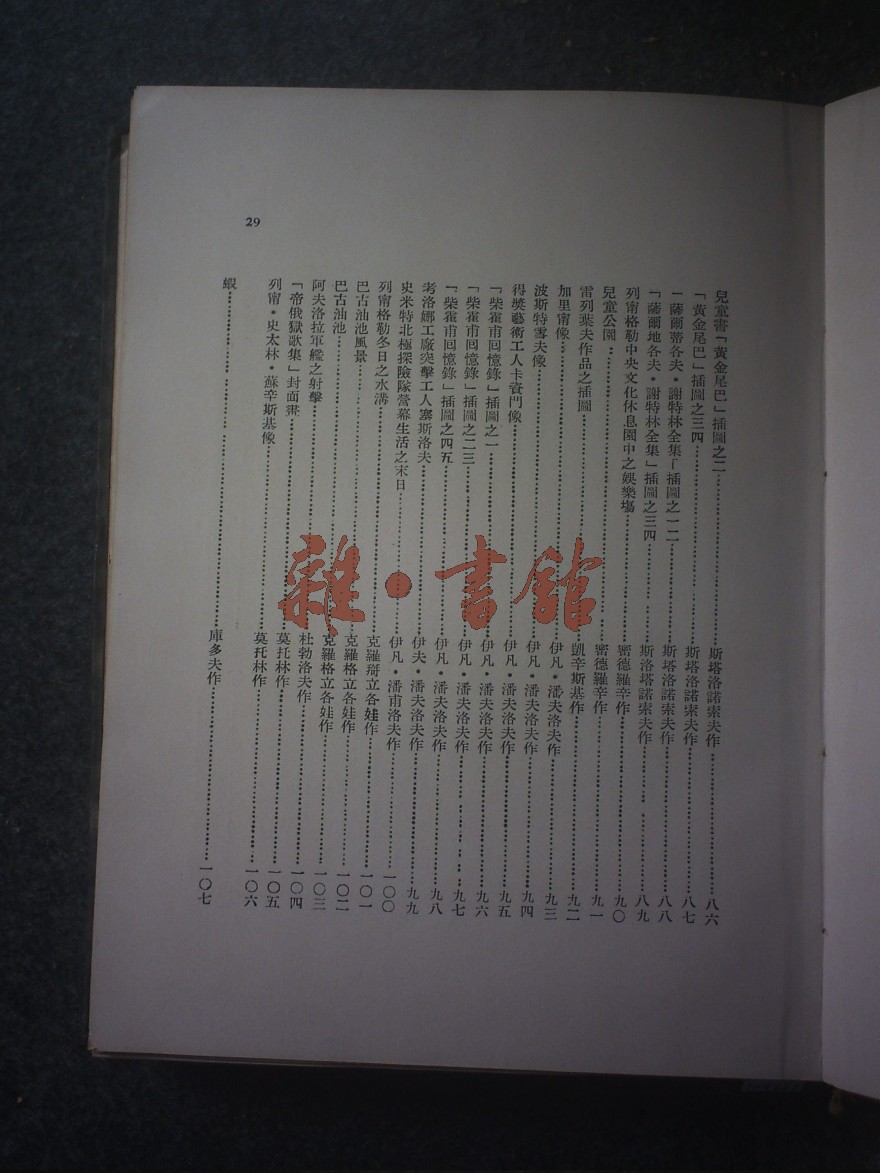 兒童書「黃金尾巴」插圖之二……斯塔洛諾索夫作……八六
「黃金尾巴」插圖之三四……斯塔洛諾索夫作……八七
「薩爾蒂各夫•謝特林全集「插圖之一二……斯塔洛諾索夫作……八八
「薩爾地各夫•謝特林全集」插圖之三四……斯洛塔諾索夫作……八九
列甯格勒中央文化休息園中之娛樂塲……密德羅辛作……九〇
兒童公園……密德羅辛作……九一
雷列葉夫作品之插圖……凱辛斯基作……九二
加里甯像……伊凡•潘夫洛夫作……九三
波斯特雪夫像……伊凡•潘夫洛夫作……九四
得獎藝術工人卡資門像……伊凡•潘夫洛夫作……九五
「柴霍甫囘憶錄」插圖之一……伊凡•潘夫洛夫作……九六
「柴霍甫囘憶錄」插圖之二三……伊凡•潘夫洛夫作……九七
「柴霍甫囘憶錄」插圖之四五……伊凡•潘夫洛夫作……九八
考洛娜工廠突擊工人塞斯洛夫……伊夫•潘夫洛夫作……九九
史米特北極探險隊營幕生活之末日……伊凡•潘甫洛夫作……一〇〇
列甯格勒冬日之水溝……克羅搿立各娃作……一〇一
巴古油池風景……克羅格立各娃作……一〇二
巴古油池……克羅格立各娃作……一〇三
阿夫洛拉軍艦之射擊……杜勃洛夫作……一〇四
「帝俄獄歌集」封面畫……莫托林作……一〇五
列甯•史太林•蘇辛斯基像……莫托林作……一〇六
蝦……庫多夫作……一〇七
29
雜•書館